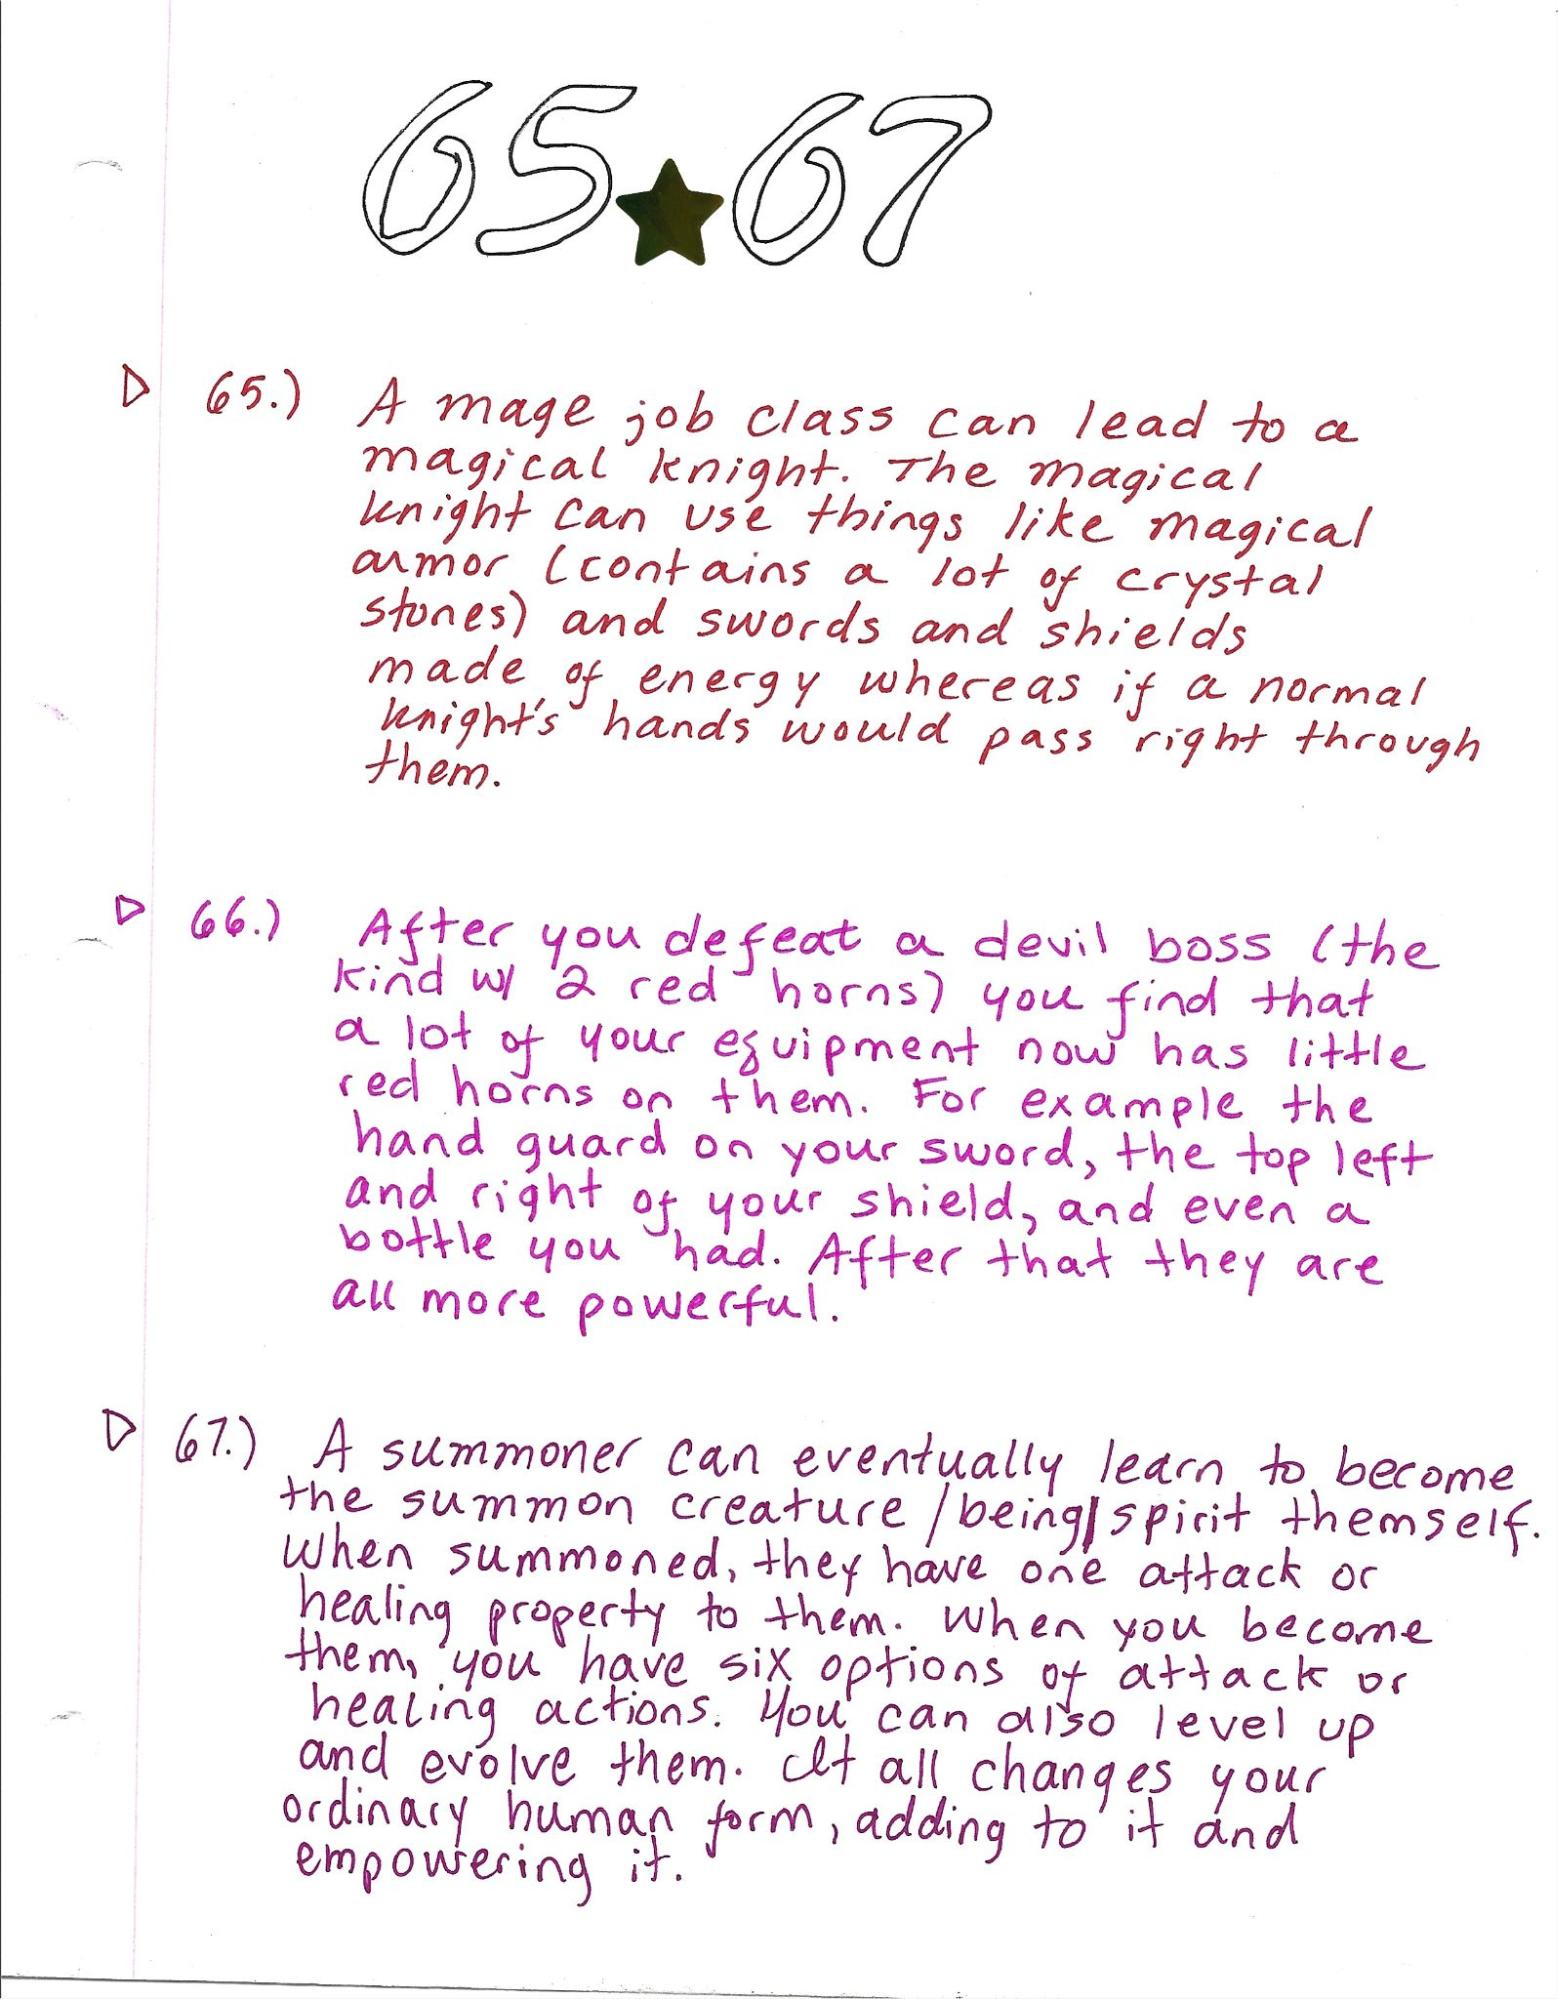 65★67
65.) A mage job class can lead to a
magical knight. The magical
knight can use things like magical
armor (contains a lot of crystal
stones) and swords and shields
made of energy whereas if a normal
knight's hands would pass right through
them.
66.) After you defeat a devil boss (the
kind w/ 2 red horns) you find that
a lot of your equipment now has little
red horns on them. For example the
hand guard on your sword, the top left
and right of your shield, and even a
bottle you had. After that they are
all more powerful.
67.) A summoner can eventually learn to become
the summon creature/being/spirit themself.
When summoned, they have one attack or
healing property to them. When you become
them, you have six options of attack or
healing actions. You can also level up
and evolve them. It all changes your
ordinary human form, adding to it and
empowering it.